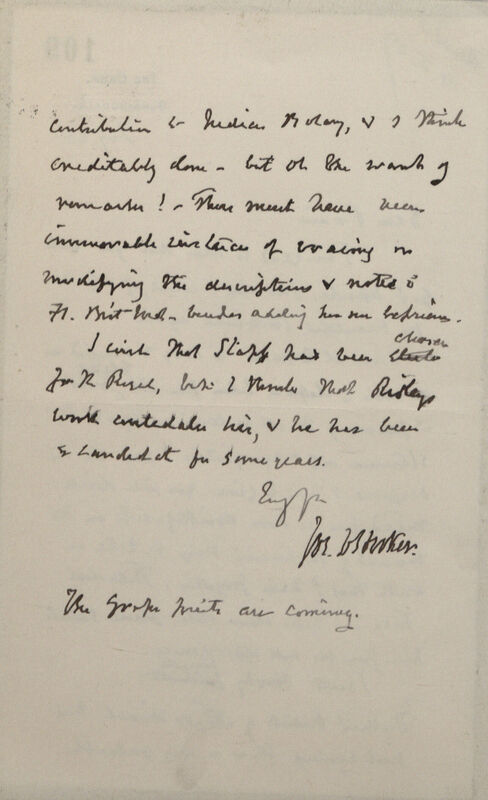 contribution to Indian Botany, & I think
creditably done - but oh the want of
remarks! - There must have been
innumerable instances of varying or
modifying the descriptions & notes
Fl. Brit. Ind. - besides adding
I wish that Stapf had been chosen
for the Royal, but I think that Ridley's
work antedates his, & he has been
a candidate for some years.
Jos. D Hooker.
The Grape fruits are coming.